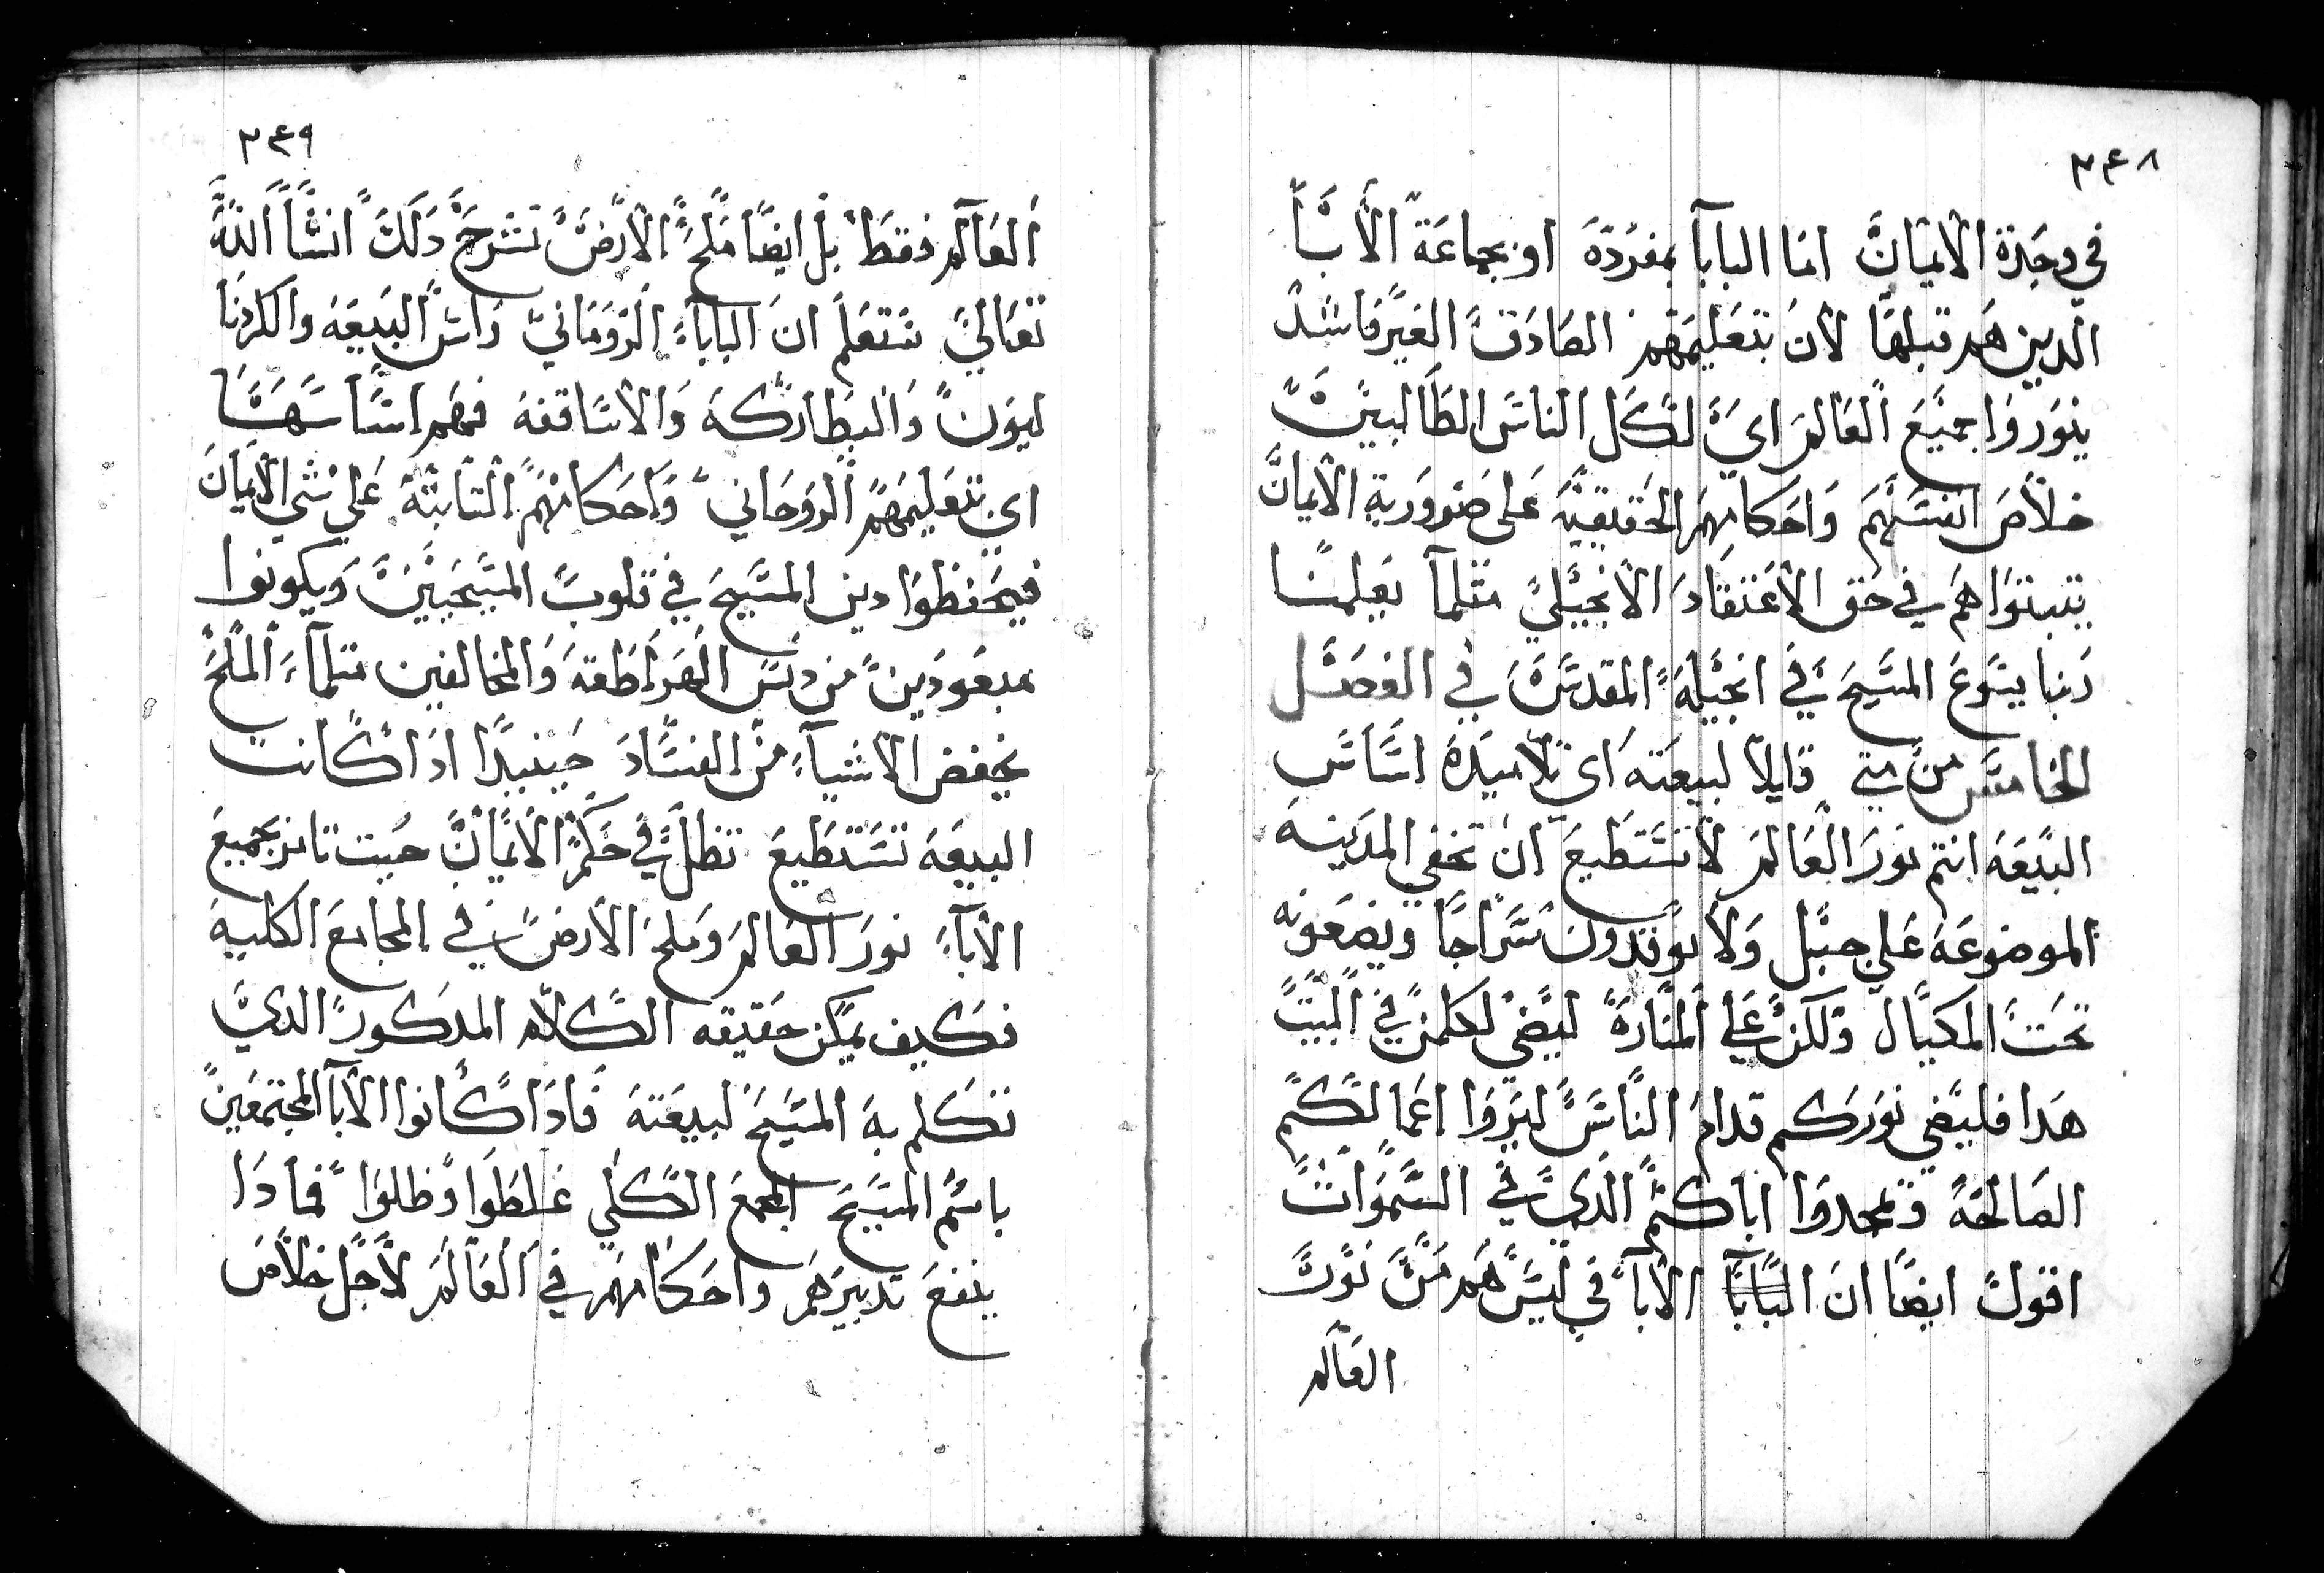 ٢٤٨
في وحدة الايمان اما البابا بمفرده او بجماعة الاباء
الدين هم قبلها لان بتعليمهم الصادق الغير فاسد
ينوروا جميع العالم اي لكل الناس الطالبين
خلاص انفسهم واحكامهم الحقيقية على ضرورية الايمان
يتبتواهم في حق الاعتقاد الانجيلي متلما يعلمنا
ربنا يسوع المسيح في انجيله المقدس في الفصل
الخامس من متي قايلا لبيعته اي تلاميده اساس
البيعه انتم نور العالم لا تستطيع ان تخفي المدينه
الموضوعه علي جبل ولا يوقدون سراجا ويضعونه
تحت المكيال ولكن علي المناره ليضي لكلمن في البيت
هدا فليضي نوركم قدام الناس ليروا اعمالكم
الصالحه ويمجدوا اباكم الدي في السموات
اقول ايضا ان البابا الاباء في ليس هم من نور
العالم
٢٤٩
العالم فقط بل ايضا ملح الارض نشرح دلك انشا الله
تعالي نتعلم ان الباباء الروماني راس البيعه والكردنا
ليون والبطاركه والاساقفه فهم اساسها
اي بتعليمهم الروحاني واحكامهم التابته علي شي الايمان
فيحفظوا دين المسيح في قلوب المسيحيين ويكونوا
مبعودين من دنس الهراطقه والمخالفين متلماء الملح
يحفض الاشياء من الفساد حينيدا ادا كانت
البيعه تستطيع تظل في حكم الايمان حيت تانر بجميع
الاباء نور العالم وملح الارض في المجامع الكليه
فكيف يمكن حقيقه الكلام المدكور الدي
تكلم به المسيح لبيعته فادا كانوا الابا المجتمعين
باسم المسيح المجمع الكلي غلطوا وظلوا فمادا
ينفع تدبيرهم واحكامهم في العالم لاجل خلاص